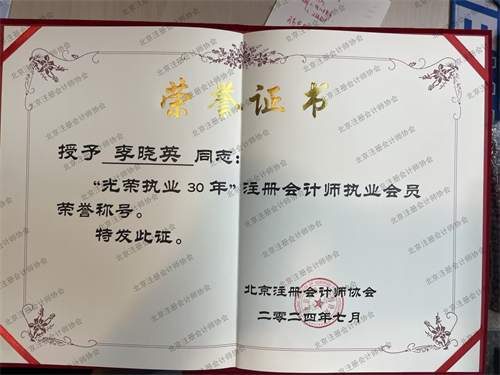 荣誉证书
授予 李晓英 同志：
“光荣执业30年”注册会计师执业会员
荣誉称号。
特发此证。
北京注册会计师协会
二〇二四年七月
北京注册会计师协会